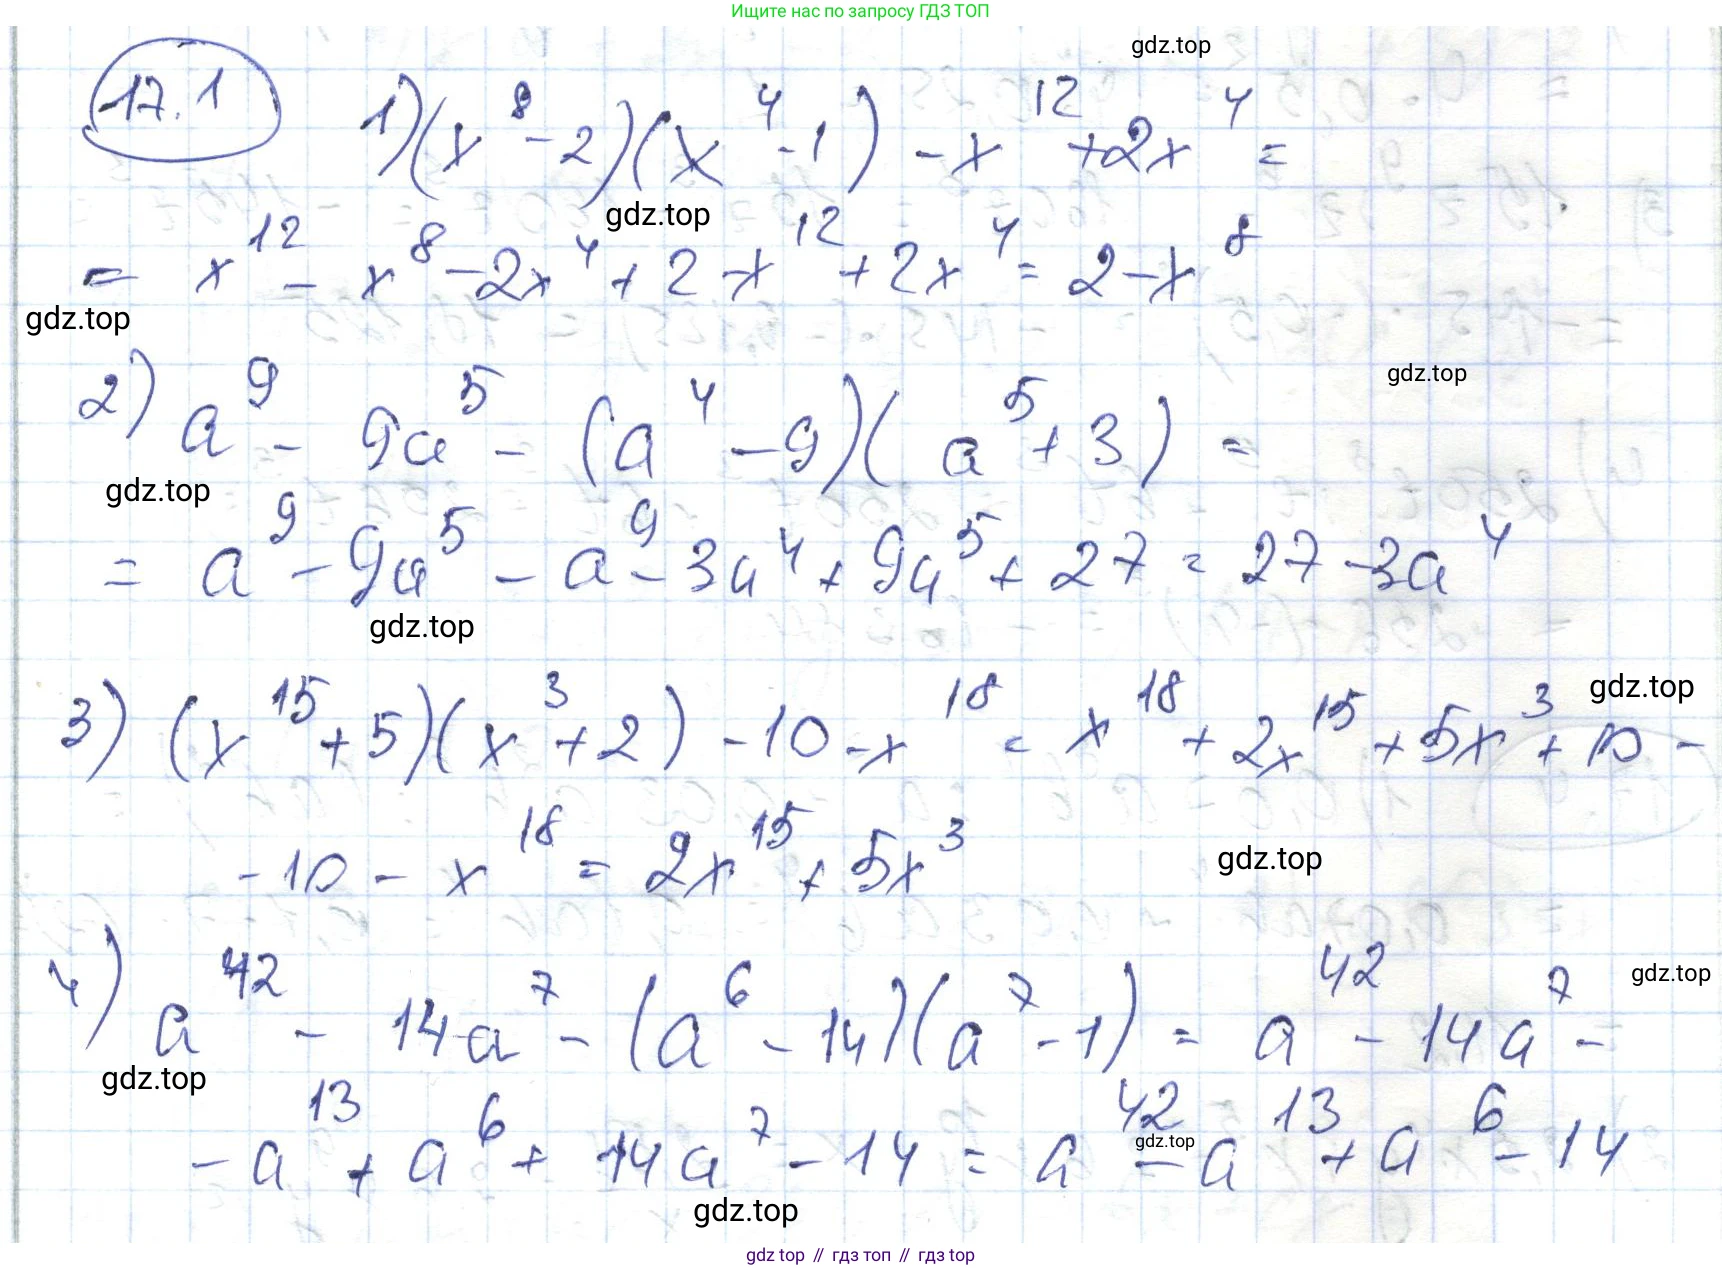 Ищите нас по запросу ГДЗ ТОП
gdz.top
17.1 1) (x⁸ - 2)(x⁴ - 1) - x¹² + 2x⁴ =
gdz.top
= x¹² - x⁸ - 2x⁴ + 2 - x¹² + 2x⁴ = 2 - x⁸
gdz.top
gdz.top
2) a⁹ - 9a⁵ - (a⁴ - 9)(a⁵ + 3) =
gdz.top
= a⁹ - 9a⁵ - a⁹ - 3a⁴ + 9a⁵ + 27 = 27 - 3a⁴
gdz.top
gdz.top
3) (x¹⁵ + 5)(x³ + 2) - 10 - x¹⁸ = x¹⁸ + 2x¹⁵ + 5x³ + 10 -
- 10 - x¹⁸ = 2x¹⁵ + 5x³
gdz.top
gdz.top
4) a⁴² - 14a⁷ - (a⁶ - 14)(a⁷ - 1) = a⁴² - 14a⁷ -
gdz.top
- a¹³ + a⁶ + 14a⁷ - 14 = a⁴² - a¹³ + a⁶ - 14
gdz.top
gdz.top
gdz top // гдз топ // gdz top